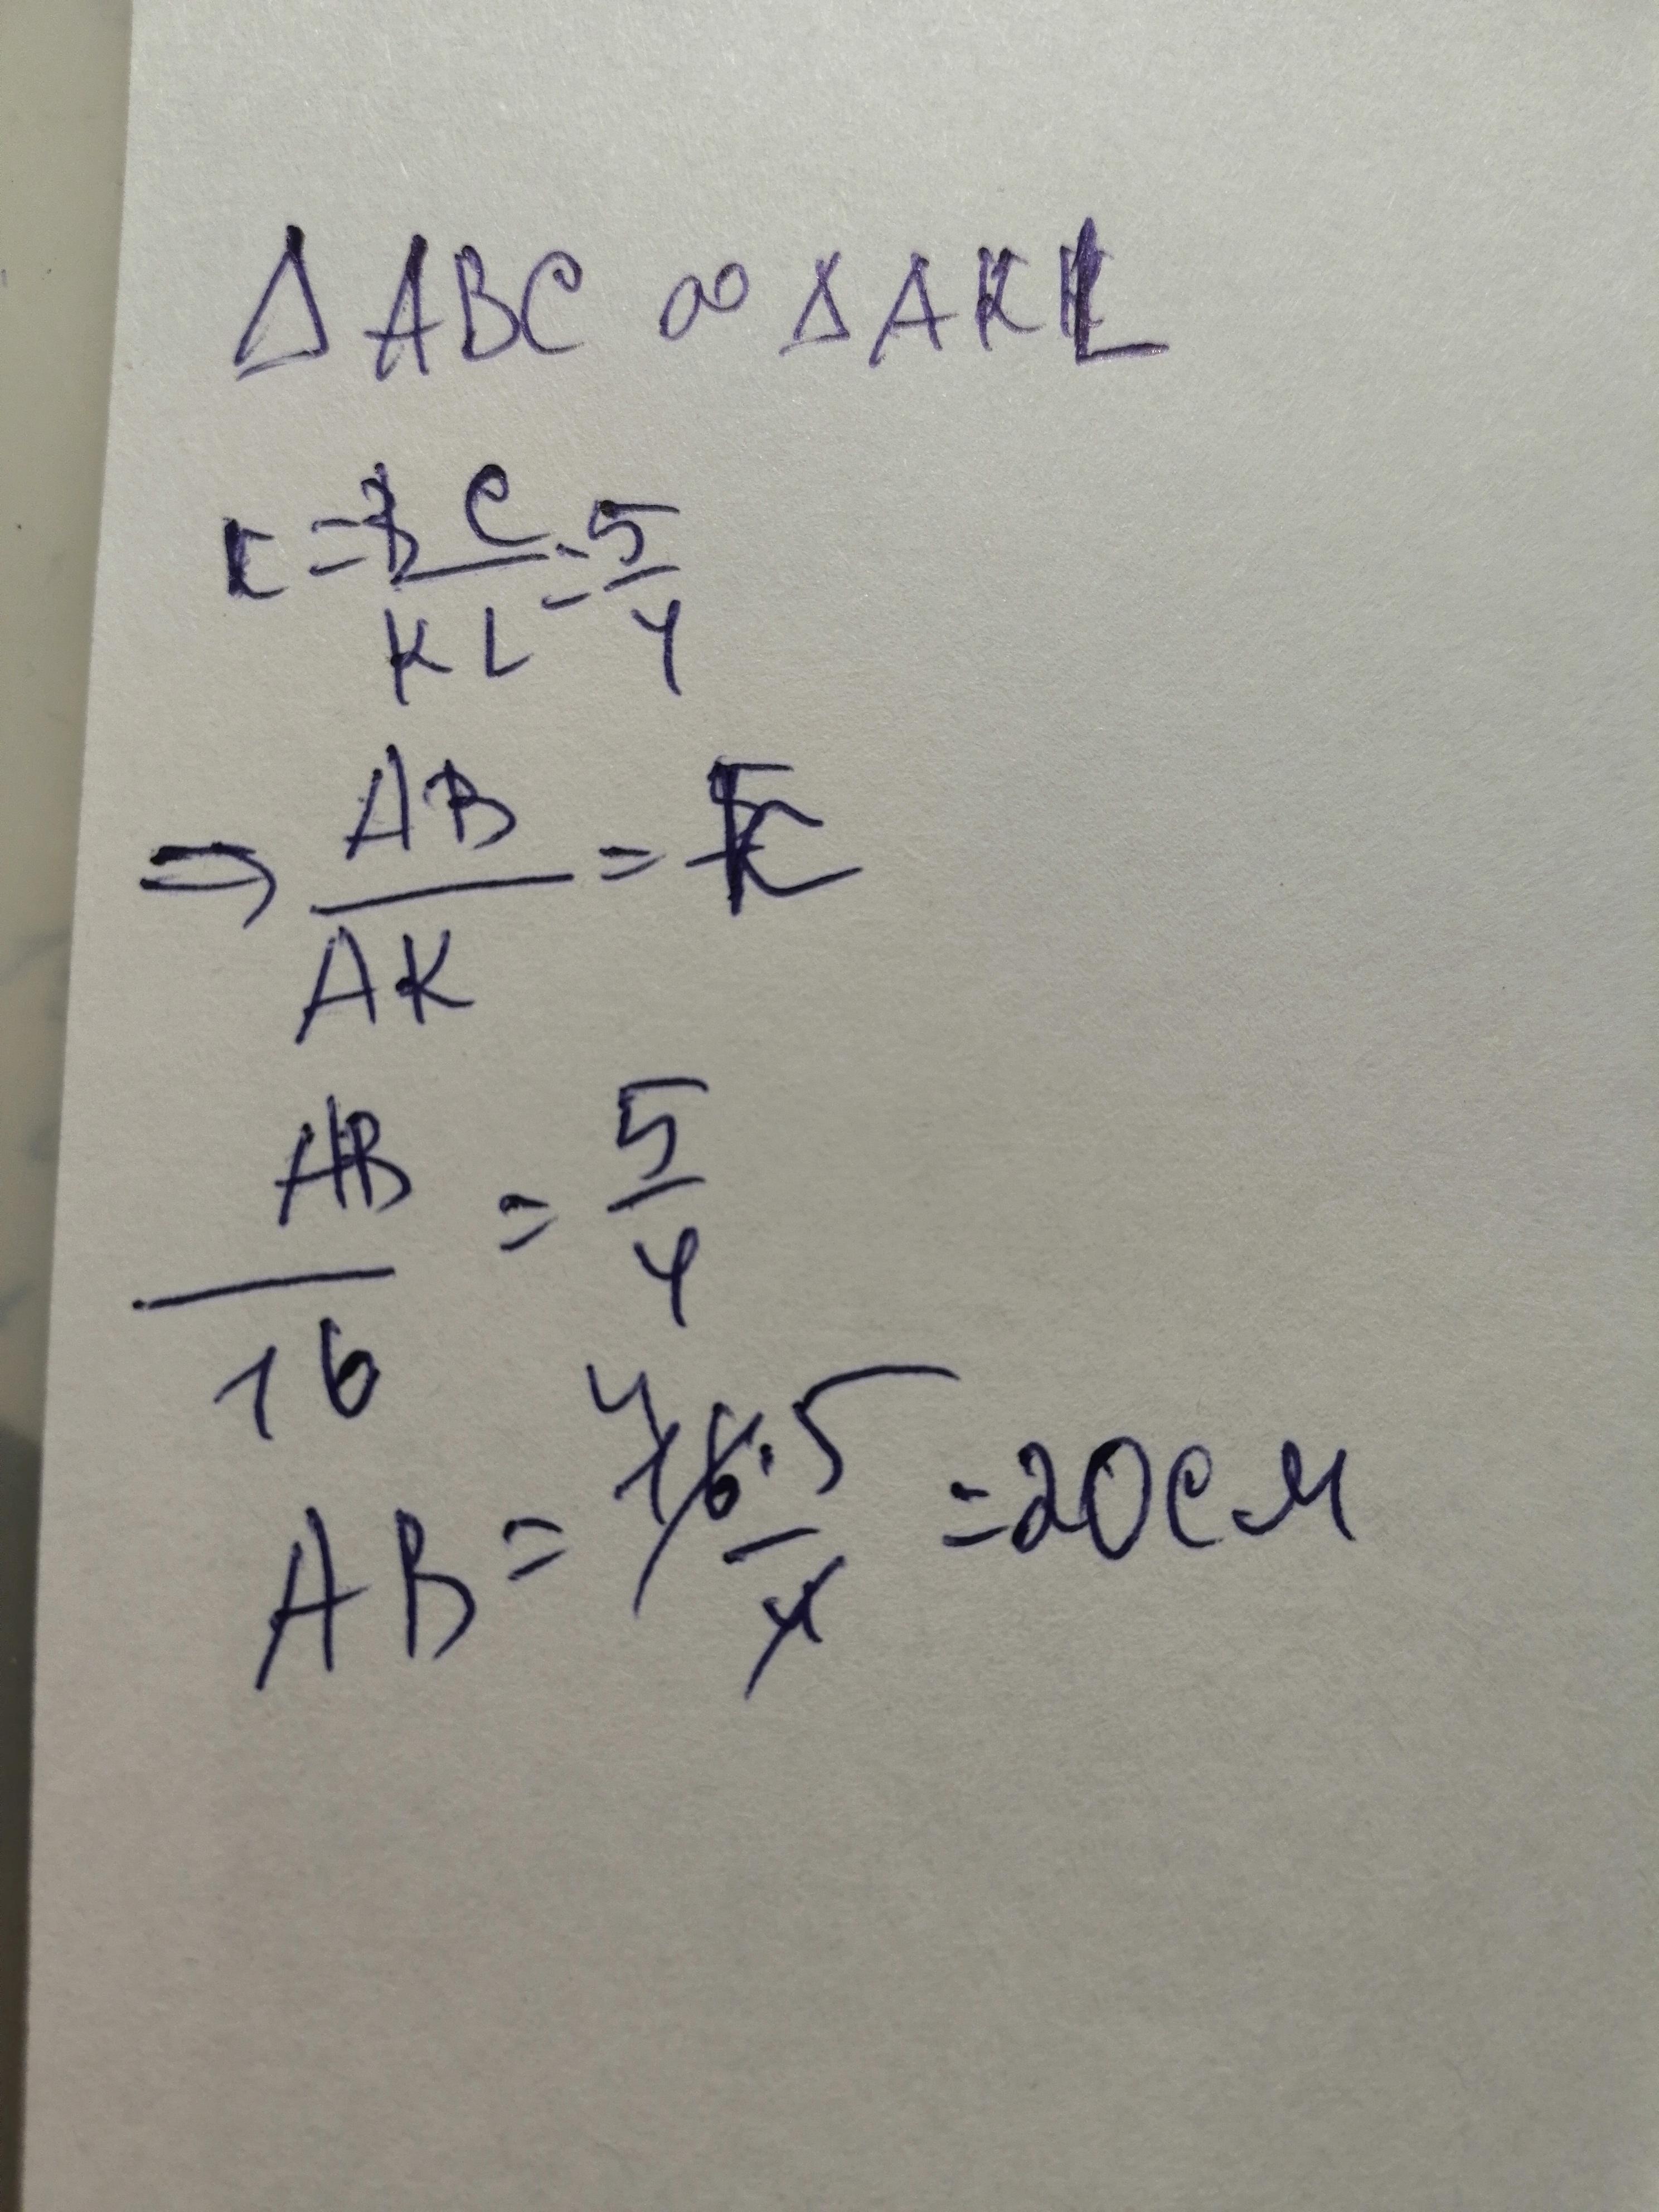 Δ ABC ∞ Δ AKL
k = BC/KL = 5/4
⇒ AB/AK = k
AB/16 = 5/4
AB = 4 16·5/4 = 20 см